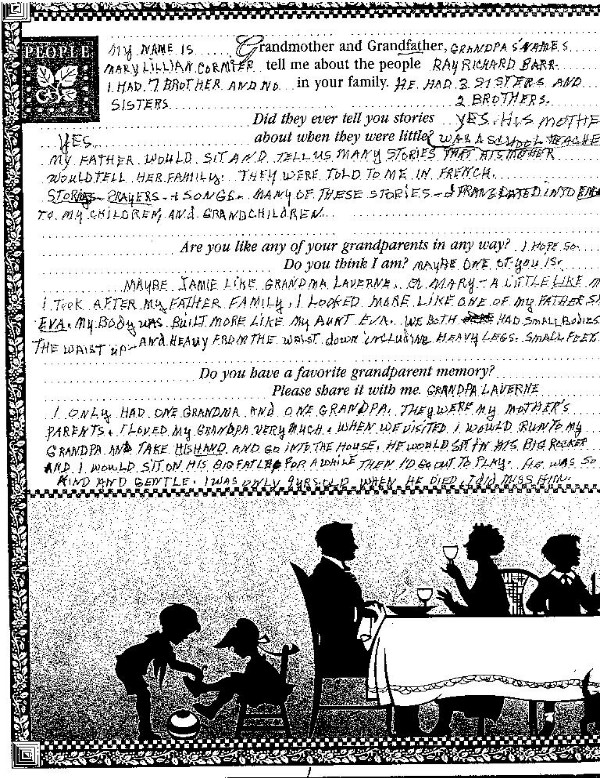 PEOPLE
MY NAME IS Grandmother and Grandfather, GRANDPA'S NAMES
MARY LILLIAN CORMIER tell me about the people RAY RICHARD BARR.
I HAD 7 BROTHER AND NO in your family. HE HAD 3 SISTERS AND
SISTERS 2 BROTHERS.
Did they ever tell you stories YES. HIS MOTHE
YES. about when they were little? WAS A SCHOOL TEACHE
MY FATHER WOULD SIT AND TELL US MANY STORIES THAT HIS MOTHER
WOULD TELL HER FAMILY. THEY WERE TOLD TO ME IN FRENCH.
STORIES - PRAYERS - + SONGS. MANY OF THESE STORIES - I TRANSLATED INTO ENG
TO MY CHILDREN AND GRANDCHILDREN.
Are you like any of your grandparents in any way? I HOPE SO.
Do you think I am? MAYBE ONE OF YOU IS.
MAYBE JAMIE LIKE GRANDMA LAVERNE. OR MARY - A LITTLE LIKE M
I TOOK AFTER MY FATHER FAMILY, I LOOKED MORE LIKE ONE OF MY FATHER SI
EVA. MY BODY WAS BUILT MORE LIKE MY AUNT EVA. WE BOTH HAD SMALL BODIES
THE WAIST UP - AND HEAVY FROM THE WAIST down INCLUDING HEAVY LEGS. SMALL FEET.
Do you have a favorite grandparent memory?
Please share it with me. GRANDPA LAVERNE
I ONLY HAD ONE GRANDMA AND ONE GRANDPA. THEY WERE MY MOTHER'S
PARENTS. I LOVED MY GRANDPA VERY MUCH. WHEN WE VISITED I WOULD RUN TO MY
GRANDPA AND TAKE HIS HAND AND GO INTO THE HOUSE. HE WOULD SIT IN HIS BIG ROCKER
AND I WOULD SIT ON HIS BIG FAT LEG FOR A WHILE THEN I'D GO OUT TO PLAY. HE WAS SO
KIND AND GENTLE. I WAS ONLY 9 YRS OLD WHEN HE DIED. I DID MISS HIM.